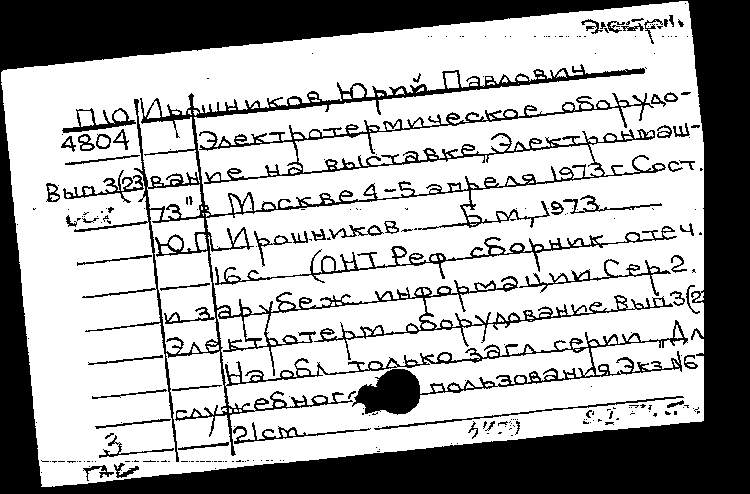 Электрон.
П10 Ирошников, Юрий Павлович
4804 Электротермическое оборудо-
Вып.3(23) вание на выставке „Электронмаш-
73" в Москве 4-5 апреля 1973 г. Сост.
Ю.П. Ирошников. Б.м., 1973.
16 с. (ОНТ. Реф. сборник отеч.
и зарубеж. информации. Сер.2.
Электротерм. оборудование. Вып.3(23
На обл. только загл. серии. „Дл
служебного пользования. Экз. №
21 см.
3